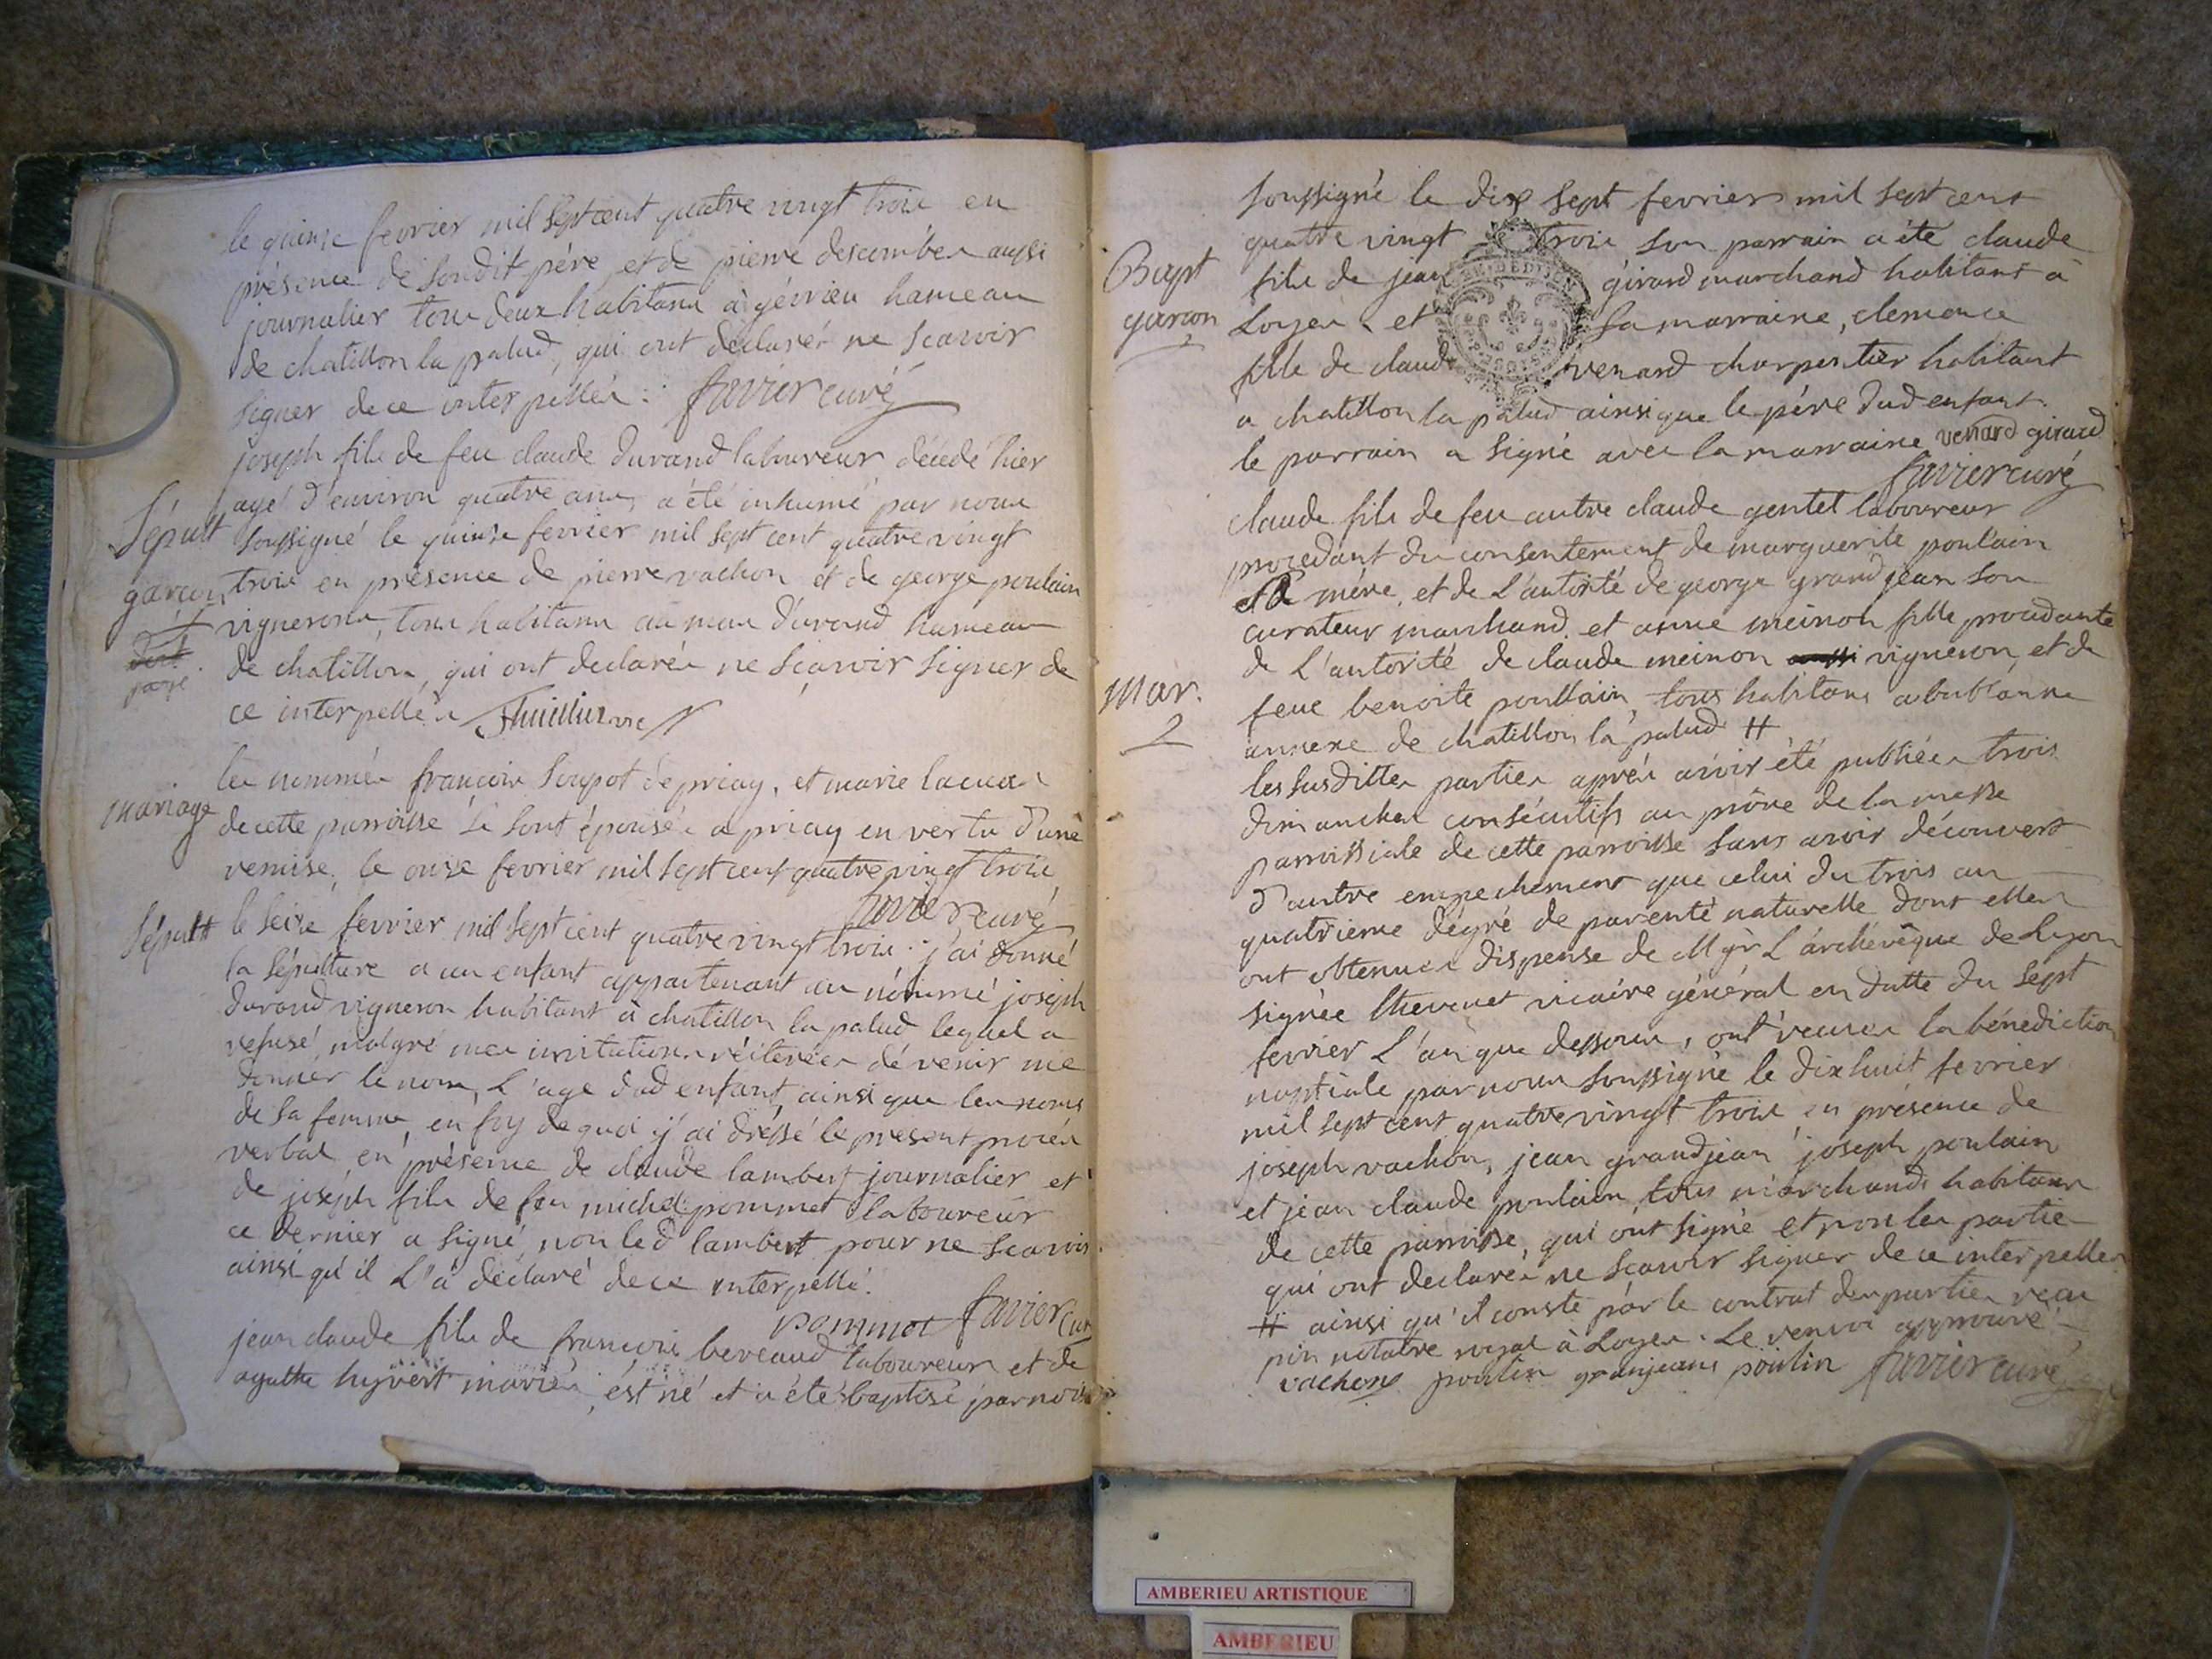 le quinze fevrier mil sept cent quatre vingt trois en
présence de sondit pére et de pierre descombes aussi
journalier tous deux habitans à gévrieu hameau
de chatillon la palud, qui ont declarés ne scavoir
signer de ce interpellés : favier curé
joseph fils de feu claude durand laboureur décédé hier
agé d'environ quatre ans, a été inhumé par nous
Sépult soussigné le quinze fevrier mil sept cent quatre vingt
garcon trois en présence de pierre vachon et de george poulain
vignerons, tous habitans au mas durand hameau
de chatillon, qui ont declarés ne sçavoir signer de
ce interpellés
les nommés francois soupot de priay, et marie
mariage de cette parroisse se sont épousés a priay en vertu d'une
remise, le onze fevrier mil sept cent quatre vingt trois
favier curé
Sépult le seize fevrier mil sept cent quatre vingt trois : j'ai donné
la sépulture a un enfant appartenant au nommé joseph
durand vigneron habitant à chatillon la palud lequel a
refusé, malgré mes invitations réiterées de venir me
donner le nom, L'age dud enfant, ainsi que les noms
de sa femme, en foy de quoi j'ai dressé le present procés
verbal en présence de claude lambert journalier et
de joseph fils de feu michel pommet laboureur
ce dernier a signé, non led lambert pour ne scavoir
ainsi qu'il L'a déclaré de ce interpellé.
pommet favier curé
jean claude fils de francois bereaud laboureur et de
agathe hyvert mariés, est né et a été baptisé par nous
soussigné le dix sept fevrier mil sept cent
quatre vingt trois son parrain a été claude
Bapt fils de jean girard marchand habitant à
garcon Loyes et sa marraine, clemence
fille de claude venard charpentier habitant
a chatillon la palud ainsi que le pére dud enfant.
le parrain a signé avec la marraine venard girard
favier curé
claude fils de feu autre claude gentet laboureur
procedant du consentement de marguerite poulain
sa mére, et de L'autorité de george grandjean son
curateur marchand. et anne meinon fille procedante
de L'autorité de claude meinon aussi vigneron, et de
Mar. feue benoite poullain, tous habitans a bublanne
2 annexe de chatillon la palud #
les susdittes parties aprés avoir été publiées trois
dimanches consécutifs au prône de la messe
parroissiale de cette parroisse sans avoir découvert
d'autre empechement que celui du trois au
quatrieme dégré de parenté naturelle dont elles
ont obtenues dispense de Mgr L'archévêque de Lyon
signée thevenet vicaire général en datte du sept
fevrier L'an que dessous, ont reçues la bénediction
nuptiale par nous soussigné le dix huit fevrier
mil sept cent quatre vingt trois en présence de
joseph vachon, jean grandjean joseph poulain
et jean claude poulain tous marchands habitans
de cette parroisse, qui ont signé et non les parties
qui ont declarés ne scavoir signer de ce interpellées
# ainsi qu'il conste par le contrat des parties recu
pin notaire royal à Loyes. Le renvoi approuvé
vachon poulin granjean poulin favier curé
AMBERIEU ARTISTIQUE
AMBERIEU